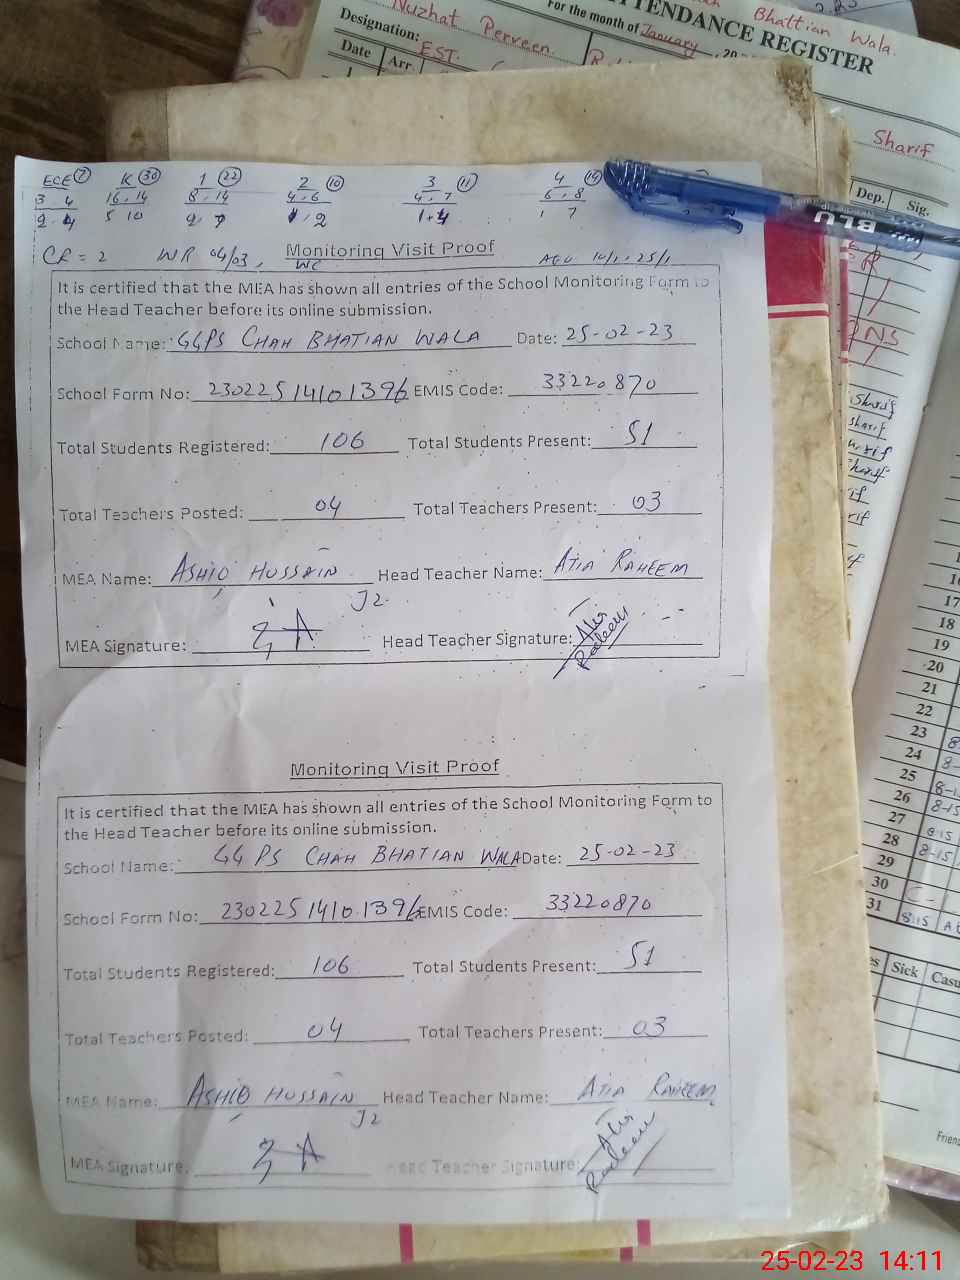 Nuzhat Perveen
Bhattian Wala.
ATTENDANCE REGISTER
For the month of January, 20
Designation: EST.
Date Arr.
1
Sharif
Dep. Sig.
ECE 7 K 30 1 22 2 10 3 11 4 14
3 4 16, 14 8, 14 4, 6 4, 7 6, 8
2 4 5 10 2, 7 1, 2 1+4 1 7
CR = 2 WR 04/03, WC Monitoring Visit Proof
It is certified that the MEA has shown all entries of the School Monitoring Form to
the Head Teacher before its online submission.
School Name: GGPS CHAH BHATIAN WALA Date: 25-02-23
School Form No: 23022514101396 EMIS Code: 33220870
Total Students Registered: 106 Total Students Present: 51
Total Teachers Posted: 04 Total Teachers Present: 03
MEA Name: ASHIQ HUSSAIN Head Teacher Name: ATIA RAHEEM
J2.
MEA Signature: Head Teacher Signature:
Monitoring Visit Proof
It is certified that the MEA has shown all entries of the School Monitoring Form to
the Head Teacher before its online submission.
School Name: GGPS CHAH BHATIAN WALA Date: 25-02-23
School Form No: 2302251410.1396 EMIS Code: 33220870
Total Students Registered: 106 Total Students Present: 51
Total Teachers Posted: 04 Total Teachers Present: 03
MEA Name: ASHIQ HUSSAIN Head Teacher Name: ATIA RAHEEM
J2
MEA Signature: Head Teacher Signature:
BLU
Sharif
Sharif
16
17
18
19
20
21
22
23
24
25
26 8-15
27
28 8-15
29
30
31 8:15
Sick Casu
25-02-23 14:11